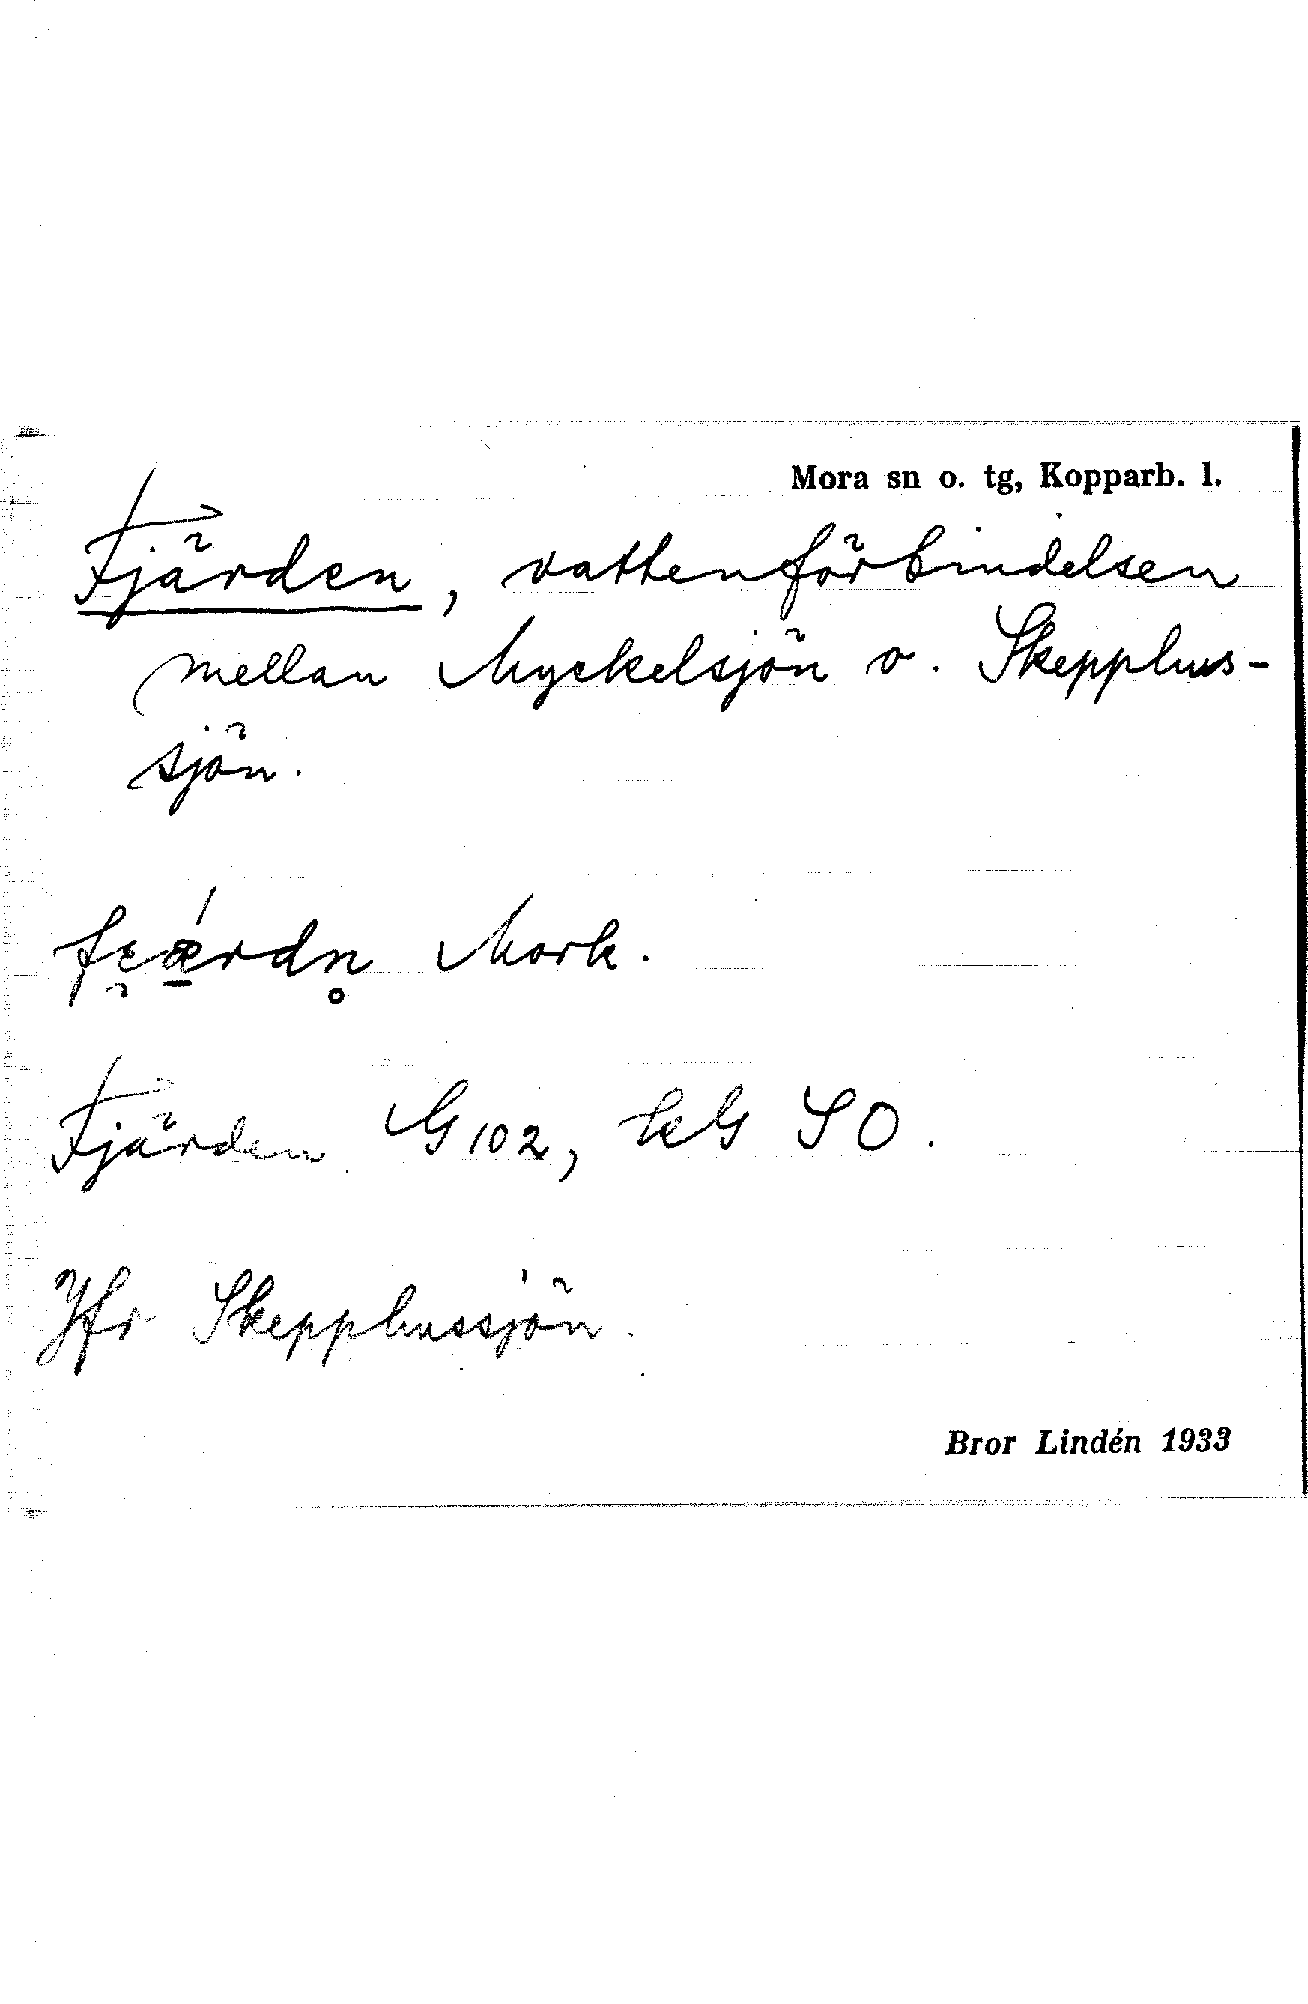 Mora sn o. tg, Kopparb. l.
Fjärden, vattenförbindelsen
mellan Myckelsjön o. Skepphus-
sjön.
fε̯ǽ̠rdn̥ Mork.
Fjärden G102, kG SO.
Jfr Skepphussjön.
Bror Lindén 1933